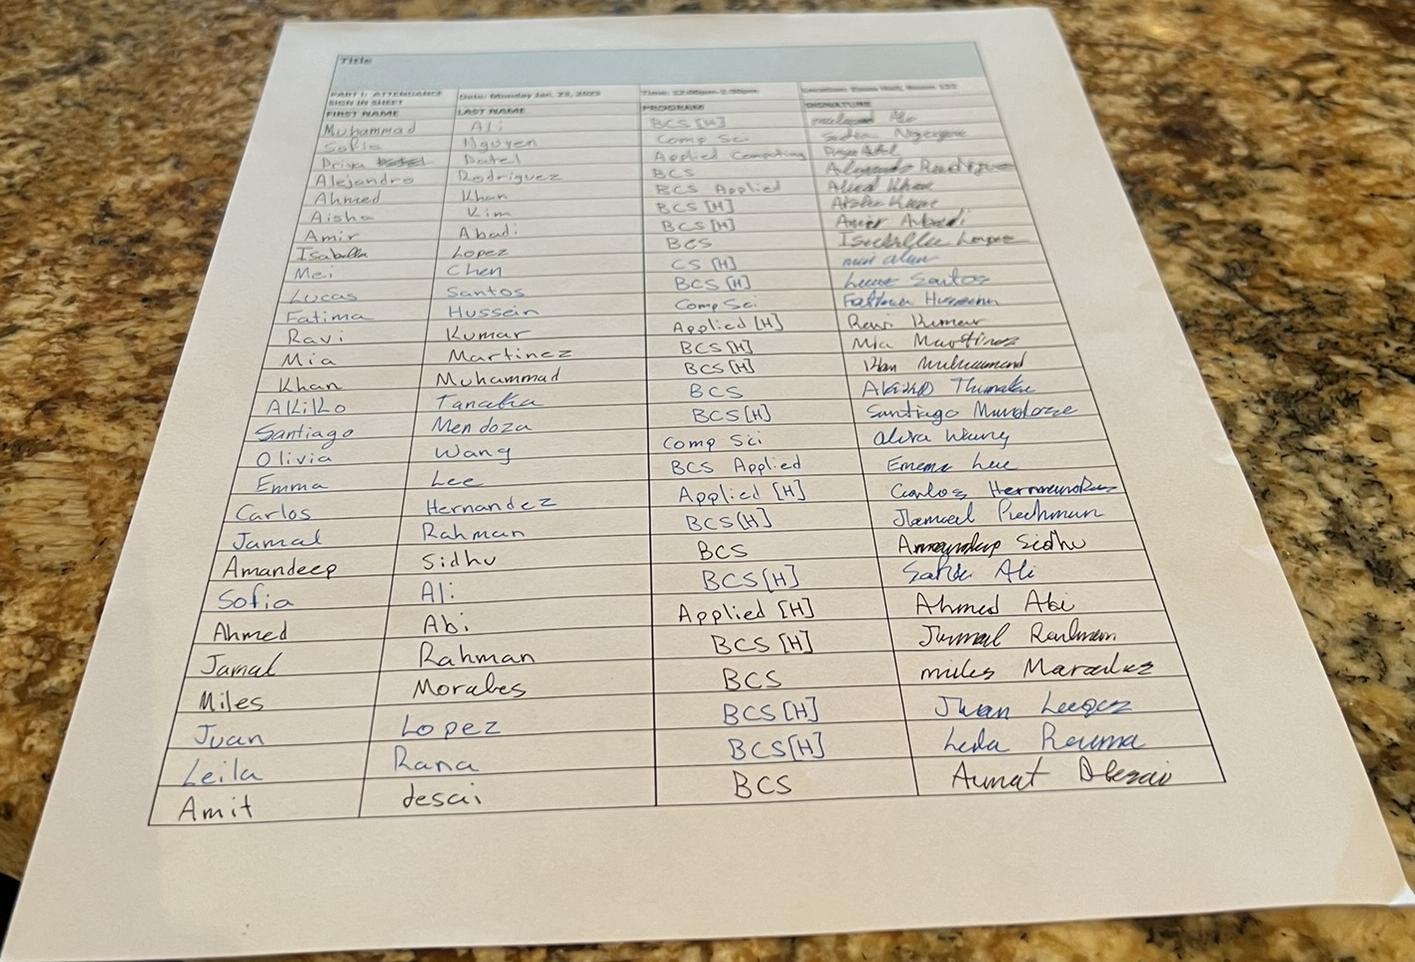 Title
PART I: ATTENDANCE SIGN IN SHEET Date: Monday Jan. 23, 2023 Time: 12:00pm-2:30pm Location: Town Hall, Room
FIRST NAME LAST NAME PROGRAM SIGNATURE
Muhammad Ali BCS [H]
Sofia Nguyen Comp Sci
Priya Patel Applied Computing
Alejandro Rodriguez BCS Alejandro Rodriguez
Ahmed Khan BCS Applied Ahmed Khan
Aisha Kim BCS [H]
Amir Abadi BCS [H] Amir Abadi
Isabella Lopez BCS Isabella Lopez
Mei Chen CS [H]
Lucas Santos BCS [H] Lucas Santos
Fatima Hussein Comp Sci Fatima Hussein
Ravi Kumar Applied [H] Ravi Kumar
Mia Martinez BCS [H] Mia Martinez
Khan Muhammad BCS [H] Khan Muhammad
Akiko Tanaka BCS
Santiago Mendoza BCS [H] Santiago
Olivia Wang Comp Sci
Emma Lee BCS Applied Emma Lee
Carlos Hernandez Applied [H] Carlos Hernandez
Jamal Rahman BCS [H]
Amandeep Sidhu BCS Amandeep Sidhu
Sofia Ali BCS [H] Ali
Ahmed Abi Applied [H] Ahmed Abi
Jamal Rahman BCS [H]
Miles Morales BCS miles
Juan Lopez BCS [H] Juan
Leila Rana BCS [H] Leila
Amit desai BCS